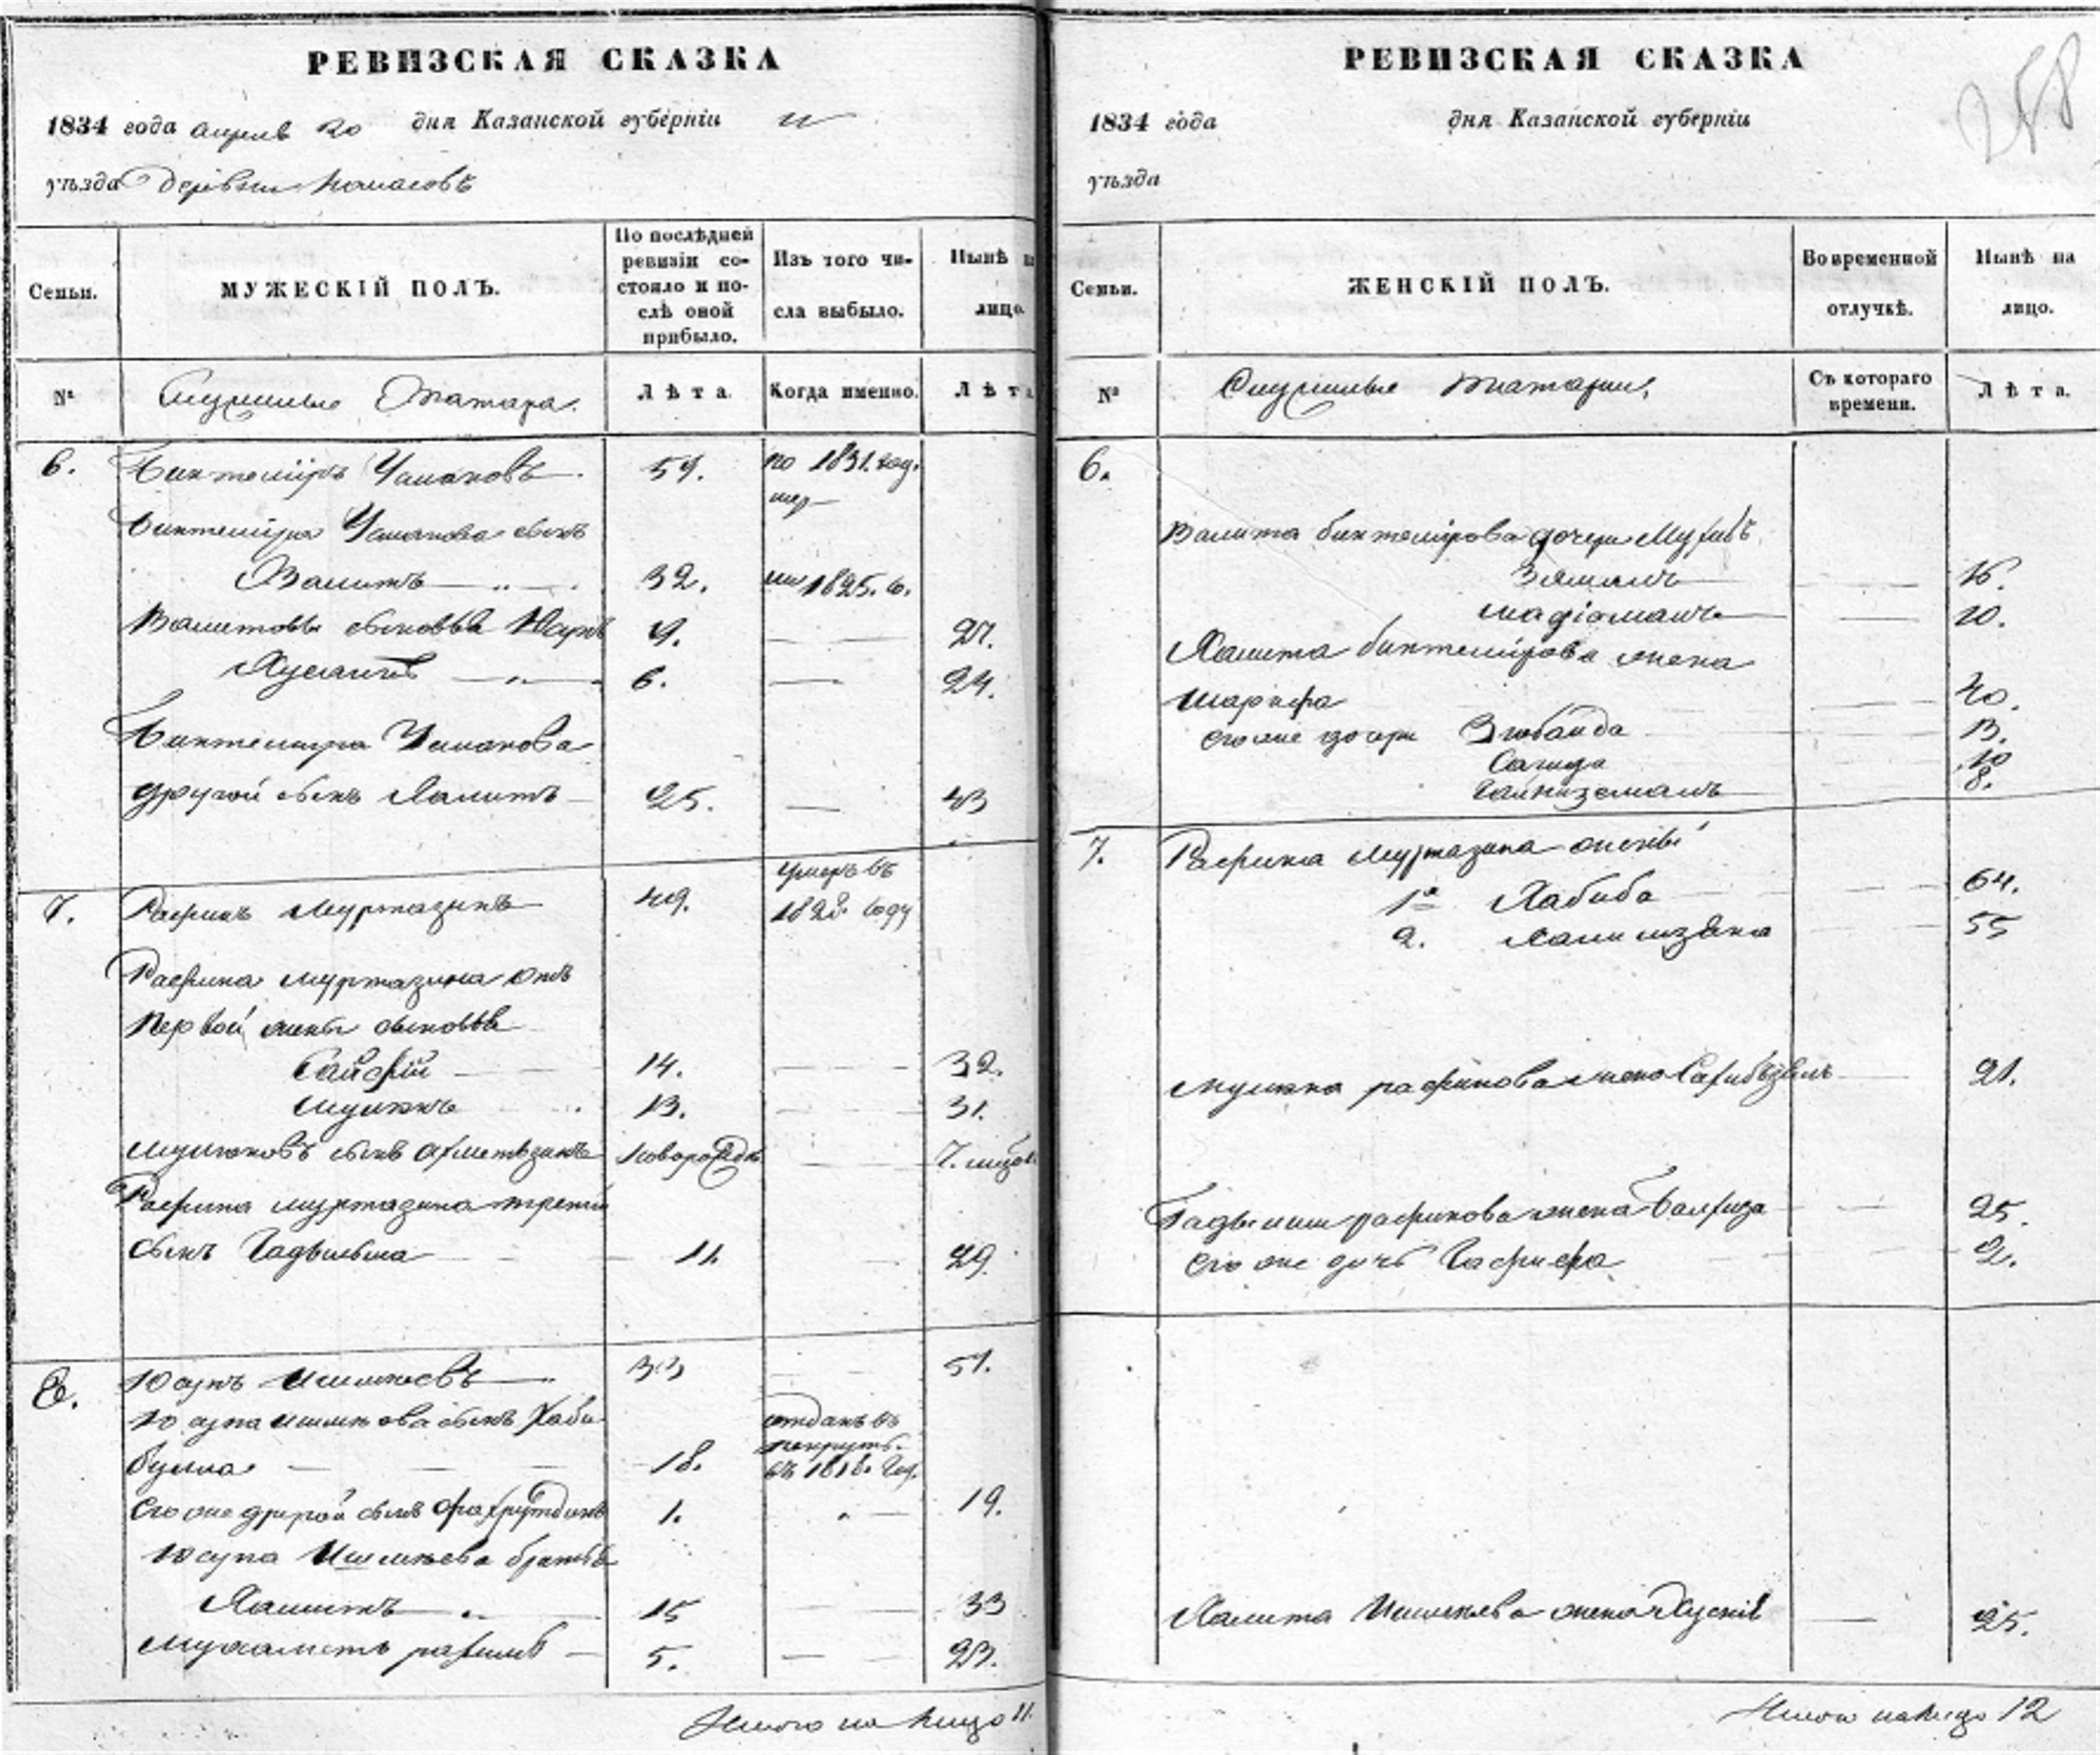 РЕВИЗСКАЯ СКАЗКА
1834 года апреля 20 дня Казанской губерніи и
уѣзда деревни
Семьи.
МУЖЕСКІЙ ПОЛЪ.
По послѣдней
ревизіи со-
стояло и по-
слѣ оной
прибыло.
Изъ того чи-
сла выбыло.
Нынѣ
лицо.
№
Служилые Татара.
Лѣта.
Когда именно.
Лѣт
6. Биктеміръ 59. въ 1831. год.
умер
Биктеміра сынъ
Валитъ 32. 1825. г.
Валитовы сыновья 9. 27.
Хусаинъ 6. 24.
Биктемира
другой сынъ Халитъ 25. 43
7. Рафикъ Муртазинъ 49. умеръ въ
1828. году
Рафика Муртазина отъ
первой жены сыновья
Сайфій 14. 32.
Мулюкъ 13. 31.
Мулюковъ сынъ Ахметьзянъ новорожден 7. мѣся
Рафика Муртазина третій
сынъ Гадыльша 11. 29.
8. Юсупъ Ишмяевъ 33 51.
Юсупа сынъ Хаби
булла 18. отданъ въ
рекруты
въ 1818. год.
Его же другой сынъ Фахрутдинъ 1. 19.
Юсупа братья
Халитъ 15 33
Мухаметь рахимъ 5. 23.
Итого на лицо 11.
РЕВИЗСКАЯ СКАЗКА
258
1834 года дня Казанской губерніи
уѣзда
Семьи.
ЖЕНСКІЙ ПОЛЪ.
Во временной
отлучкѣ.
Нынѣ на
лицо.
№
Служилые татарки,
Съ котораго
времени.
Лѣта.
6.
Валита Биктемірова дочери
Зямалъ 16.
10.
Халита Биктемірова жена
Шарифа 40.
Его же дочери Зюбаида 13.
Сагида 10
8.
7. Рафика Муртазина жены
1я Хабиба 64.
2. 55
Мулюка Рафикова жена 21.
Гадыльши Рафикова жена 25.
Его же дочь Гафифа 2.
Халита жена 25.
Итого налицо 12